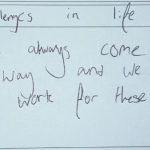 in life
always come
way and we
work for these